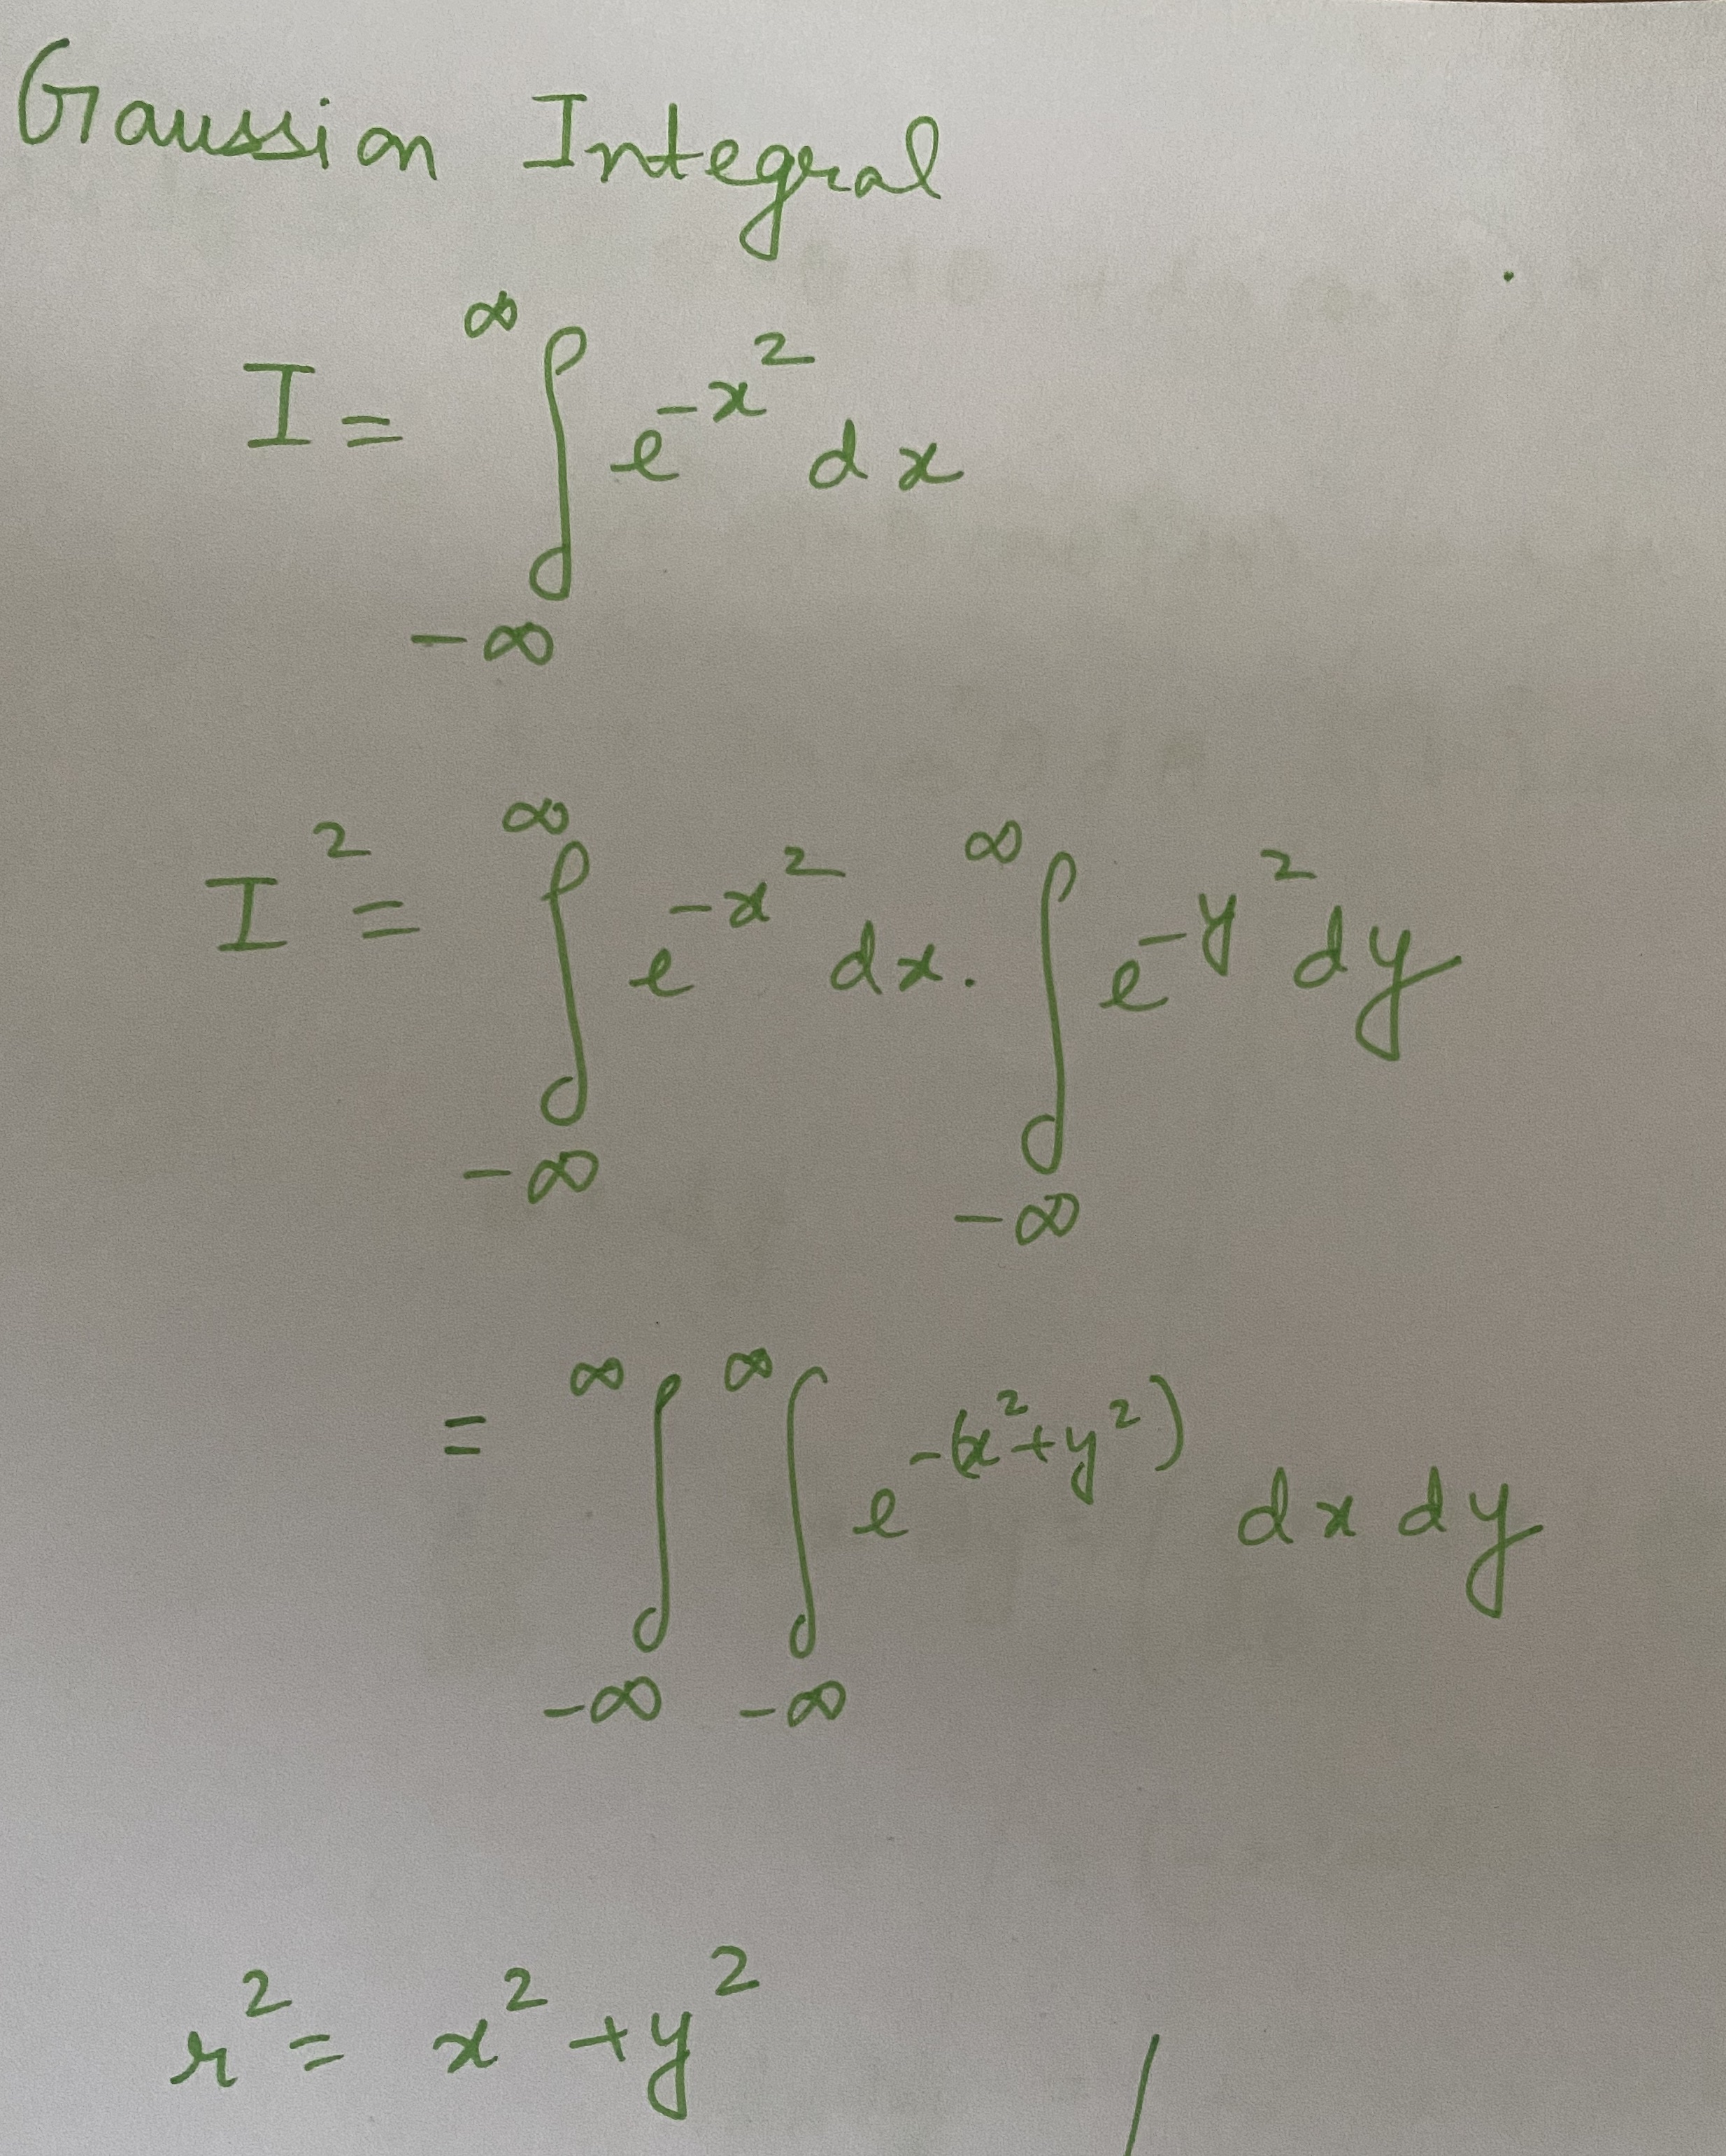 Gaussian Integral
I = ∫_{-∞}^{∞} e^{-x^2} dx
I^2 = ∫_{-∞}^{∞} e^{-x^2} dx . ∫_{-∞}^{∞} e^{-y^2} dy
= ∫_{-∞}^{∞} ∫_{-∞}^{∞} e^{-(x^2+y^2)} dx dy
r^2 = x^2 + y^2